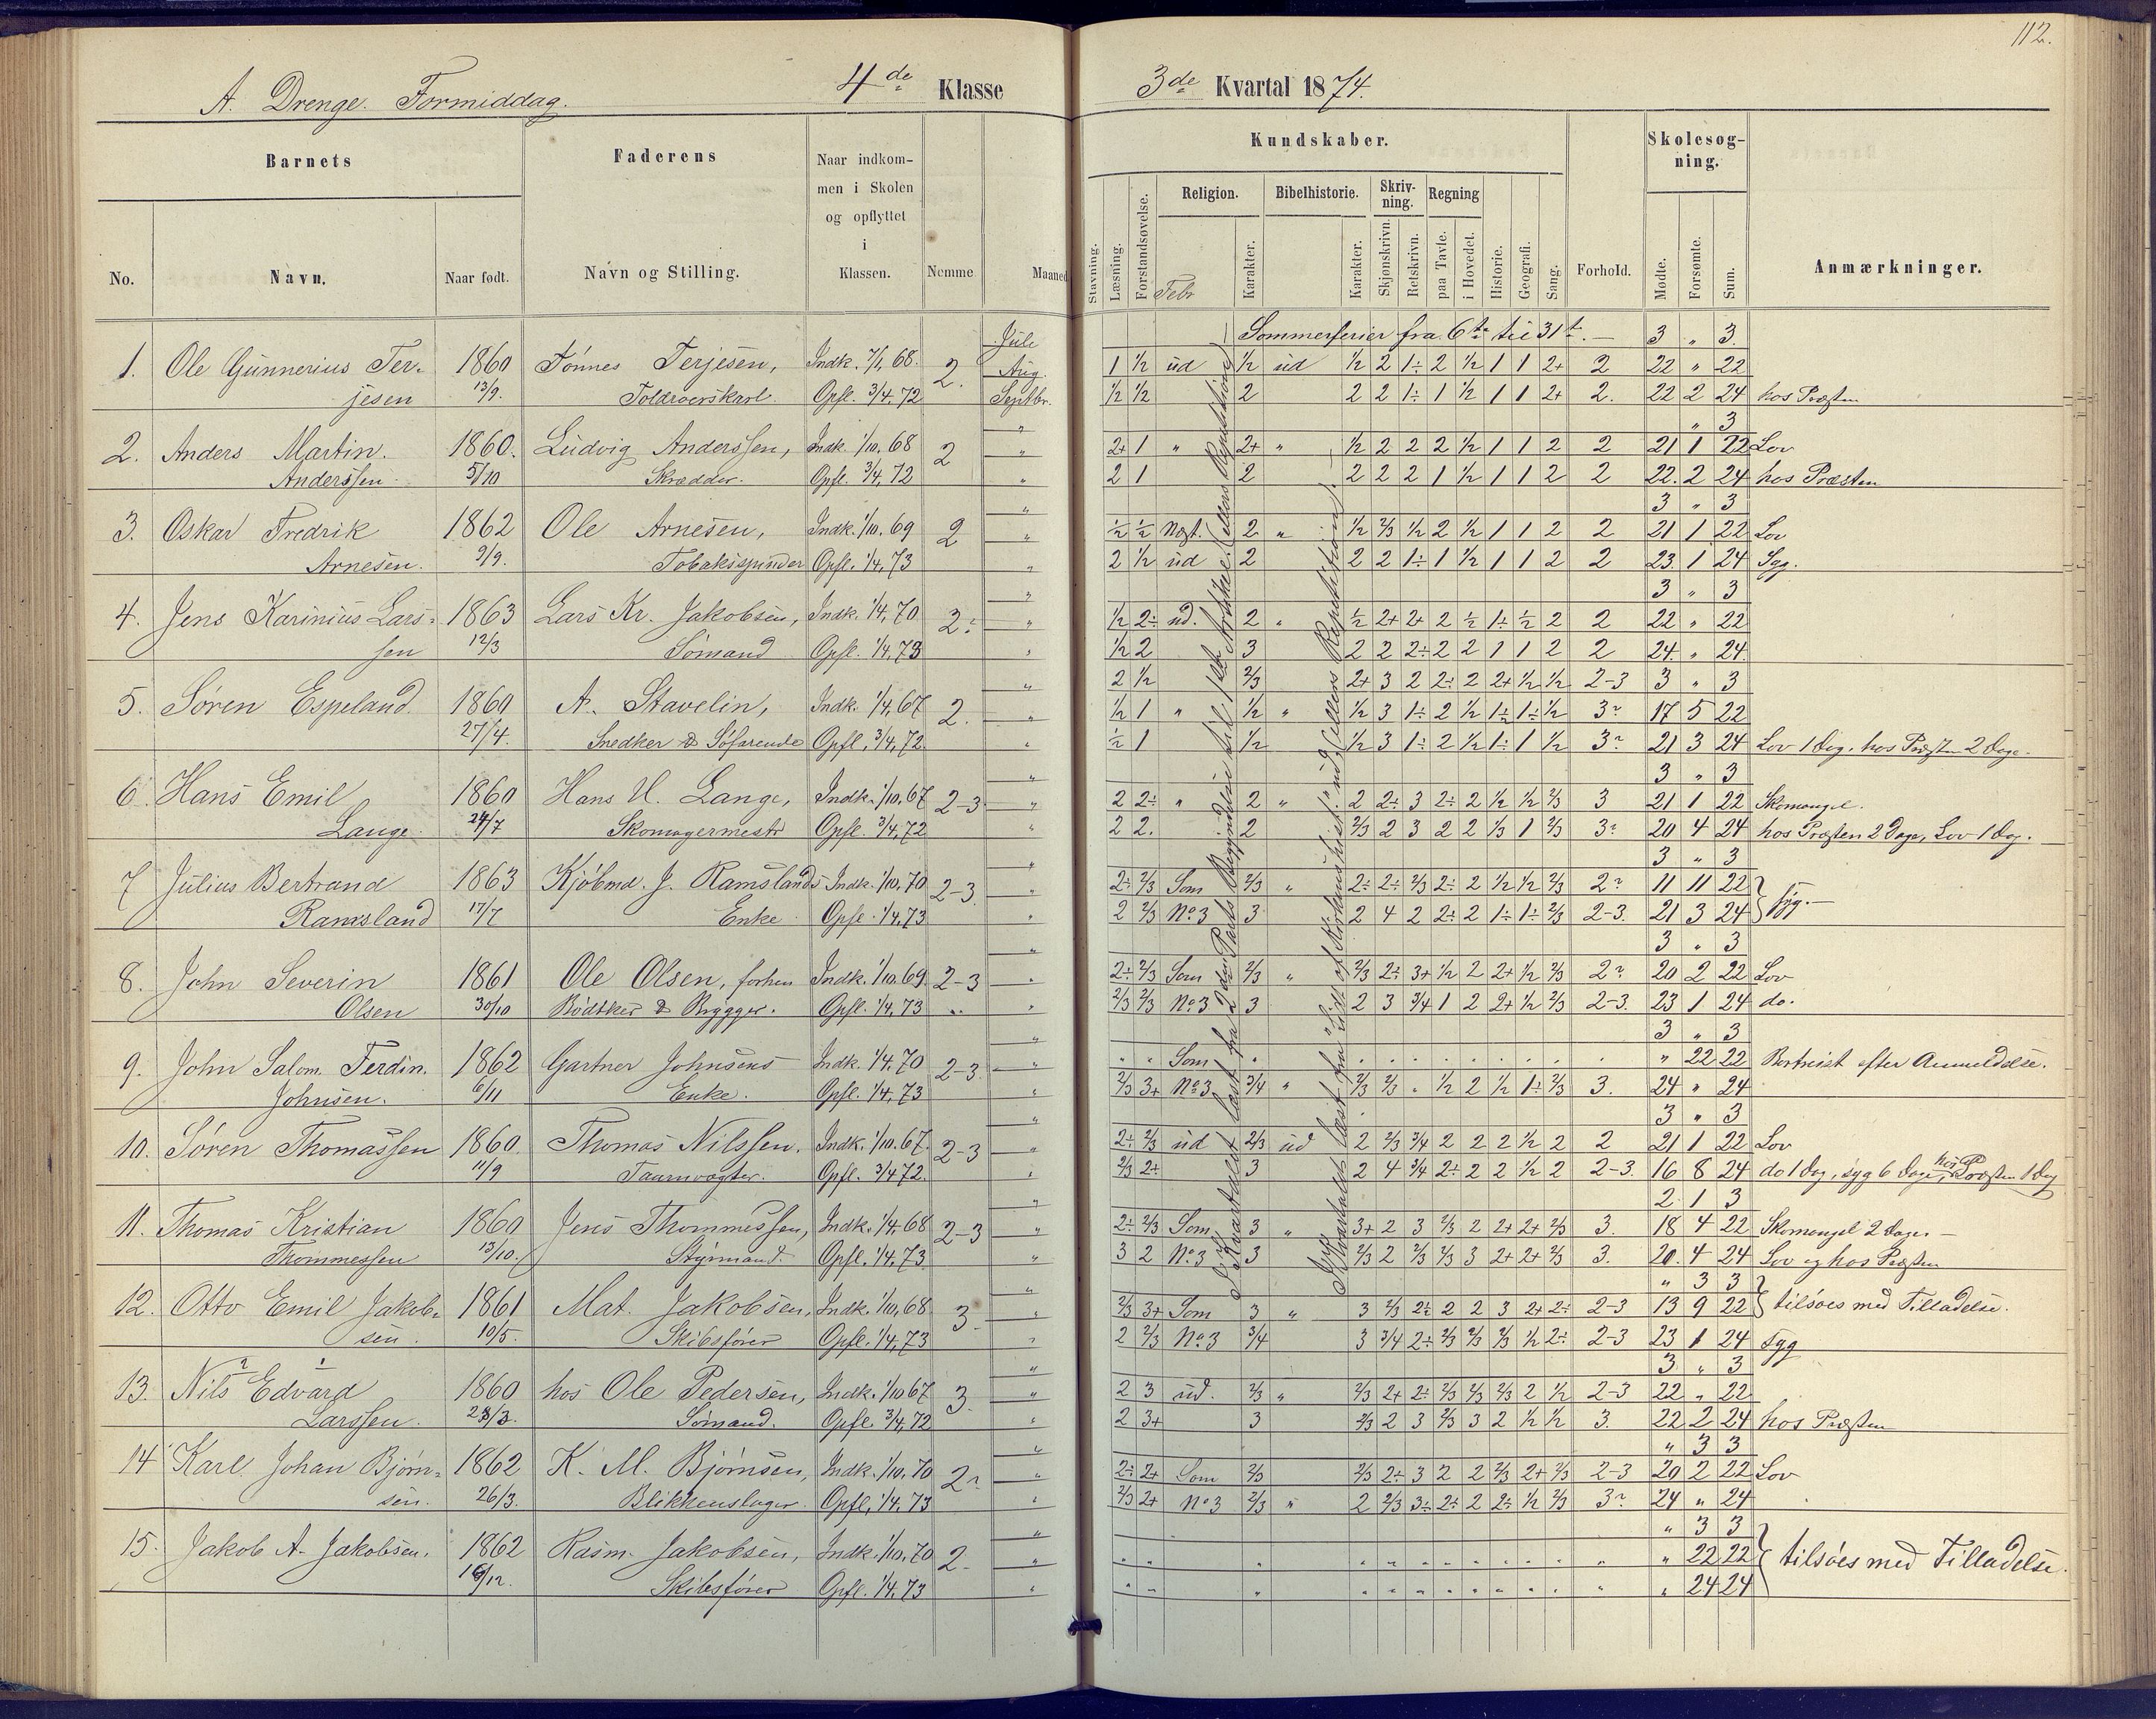 112.
A. Drenge. Formiddag. 4de Klasse 3de Kvartal 1874.
Barnets Faderens Naar indkommen i Skolen og opflyttet i Klassen. Nemme Maaned
No. Navn. Naar født. Navn og Stilling.
Kundskaber. Skolesøgning.
Stavning. Læsning. Forstandsøvelse. Religion. Karakter. Bibelhistorie. Karakter. Skrivning. Skjønskrivn. Retskrivn. Regning paa Tavle. i Hovedet. Historie. Geografi. Sang. Forhold. Mødte. Forsømte. Sum. Anmærkninger.
Juli Sommerferier fra 6te til 31t. — 3 " 3.
1. Ole Gunnerius Ter- 1860 Tønnes Terjesen, Indk. 7/1, 68. 2. Aug. 1 ½ ud ½ ud ½ 2 1÷ 2 ½ 1 1 2+ 2 22 " 22
jesen 13/9. Toldroerskarl. Opfl. 3/4. 72 Septbr. ½ ½ 2 2 2 1÷ 1 ½ 1 1 2+ 2. 22 2 24 hos Præsten
" " 3
2. Anders Martin. 1860. Ludvig Anderssen, Indk. 1/10. 68 2 " 2+ 1 " 2+ " ½ 2 2 2 ½ 1 1 2 2 21 1 22 Lov
Anderssen. 5/10 Skrædder. Opfl. 3/4, 72 " 2 1 2 2 2 2 1 ½ 1 1 2 2 22. 2 24 hos Præsten
" 3 " 3
3. Oskar Fredrik 1862 Ole Arnesen, Indk. 1/10. 69 2 " ½ ½ Nogt. 2 " ½ 2/3 ½ 2 ½ 1 1 2 2 21 1 22 Lov
Arnesen. 9/9. Tobaksspinder Opfl. 1/4, 73 " 2 ½ ud 2 2 2 1÷ 1 ½ 1 1 2 2 23. 1 24 Syg.
" 3 " 3
4. Jens Karinius Lars- 1863 Lars Kr. Jakobsen, Indk. 1/4, 70 2÷ " ½ 2÷ ud. 2 " ½ 2+ 2+ 2 ½ 1÷ ½ 2 2 22 " 22
sen 12/3 Sømand Opfl. 1/4, 73 " ½ 2 3 2 2 2÷ 2 2 1 1 2 2 24. " 24.
" 2 ½ 2/3 2+ 3 2 2÷ 2 2+ ½ ½ 2-3 3 " 3
5. Søren Espeland. 1860 A. Stavelin, Indk. 1/4, 67 2. " ½ 1 " ½ " ½ 3 1÷ 2 ½ 1÷ 1÷ ½ 3 17 5 22
27/4. Snedker & Søfarende Opfl, 3/4, 72 " ½ 1 ½ ½ 3 1÷ 2 ½ 1÷ 1 ½ 3 21 3 24 Lov 1 Dag. hos Præsten 2 Dage.
3 " 3
6. Hans Emil 1860 Hans U. Lange, Indk. 1/10, 67 2-3 " 2 2÷ " 2 " 2 2÷ 3 2÷ 2 ½ ½ 2/3 3 21 1 22 Skomangel.
Lange. 24/7 Skomagermestr Opfl. 3/4, 72 " 2 2. 2 2/3 2 3 2 2 1/3 1 2/3 3 20 4 24 hos Præsten 2 Dage, Lov 1 Dag.
" 3 " 3
7 Julius Bertrand 1863 Kjøbmd. J. Ramslands Indk. 1/10, 70 2-3 " 2÷ 2/3 Som 2/3 " 2÷ 2÷ 2/3 2÷ 2 ½ ½ 2/3 2 11 11 22
Ramsland 17/7 Enke Opfl. 1/4, 73 " 2 2/3 No 3 3 2 4 2 2÷ 2 1÷ 1÷ 2/3 2-3. 21 3 24 syg. —
" 3 " 3
8. John Severin 1861 Ole Olsen, forhen Indk. 1/10. 69. 2-3 " 2÷ 2/3 Som 2/3 " 2/3 2÷ 3+ ½ 2 2+ ½ 2/3 2 20 2 22 Lov
Olsen 30/10 Bødtker & Brygger. Opfl. 1/4. 73 " 2/3 2/3 No 3 3 2 3 3/4 1 2 2+ ½ 2/3 2-3. 23 1 24 do.
" 3 " 3
9. John Salom. Ferdin. 1862 Gartner Johnsens Indk. 1/4. 70 2-3 " " " Som " " 22 22 Bortreist efter Anmeldelse.
Johnsen. 6/11 Enke. Opfl. 1/4. 73 " 2/3 3+ No 3 3/4 " 2/3 2/3 " ½ 2 ½ 1÷ 2/3 3. 24 " 24
3 " 3
10. Søren Thomassen 1860. Thomas Nilssen. Indk. 1/10. 67. 2-3 " 2÷ 2/3 ud 2/3 ud 2 2/3 3/4 2 2 2 ½ 2 2 21 1 22 Lov
11/9 Taarnvogter. Opfl. 3/4 72. " 2/3 2÷ 3 2 4 3/4 2÷ 2 2 ½ 2 2-3. 16 8 24 do 1 Dag, syg 6 Dage, hos Præsten 1 Dag
" 2 1 3
11. Thomas Kristian 1860 Jens Thommessen, Indk. 1/4. 68 2-3 " 2÷ 2/3 Som 3 " 3+ 2 3 2/3 2 2+ 2+ 2/3 3. 18 4 22 Skomangel 2 Dage. —
Thommessen 13/10. Styrmand. Opfl. 1/4. 73. " 3 2 No 3 3 2/3 2 2/3 2/3 3 2+ 2+ 2/3 3. 20. 4 24 Lov og hos Præsten
" " 3 3
12. Otto Emil Jakob- 1861 Mat. Jakobsen, Indk. 1/10, 68 3. " 2/3 3+ Som 3 " 3 2/3 2÷ 2 2 3 2+ 2÷ 2-3 13 9 22 tilsøes med Tilladelse.
sen. 10/5. Skibsfører Opfl. 1/4, 73 " 2 2/3 No 3 3/4 3 3/4 2÷ 2/3 2/3 2/3 ½ 2÷ 2-3 23 1 24 Syg
" 3 " 3
13. Nils Edvard 1860 hos Ole Pedersen, Indk. 1/10 67 3. " 2 3 ud. 2/3 " 2/3 2+ 2÷ 2/3 2/3 2/3 2 ½ 2-3 22 " 22
Larssen. 23/3. Sømand. Opfl. 3/4, 72 " 2 3+ 3 2/3 2 3 2/3 3 2 ½ ½ 3. 22 2 24 hos Præsten
" " 3 3
14 Karl Johan Bjørn- 1862 K. M. Bjørnsen, Indk. 1/10, 70 2 " 2÷ 2+ Som 2/3 2/3 2÷ 3 2 2 2/3 2+ 2/3 2-3 20 2 22 Lov
sen. 26/3. Blikkenslager. Opfl. 1/4. 73 " 2/3 2+ No 3 2/3 " 2 2/3 3÷ 2÷ 2 2÷ ½ 2/3 3 24 " 24
" " 3 3
15. Jakob A. Jakobsen. 1862 Rasm. Jakobsen, Indk. 1/10. 70 2. " " 22 22 tilsøes med Tilladelse.
/12. Skibsfører Opfl. 1/4. 73 " " 24 24
I Kvartalet læst fra 2den Parts Begyndelse til 1ste Artikkel (ellers Repetition)
I Kvartalet læst fra "Lidt af Kirkens hist." ud, (ellers Repetition).